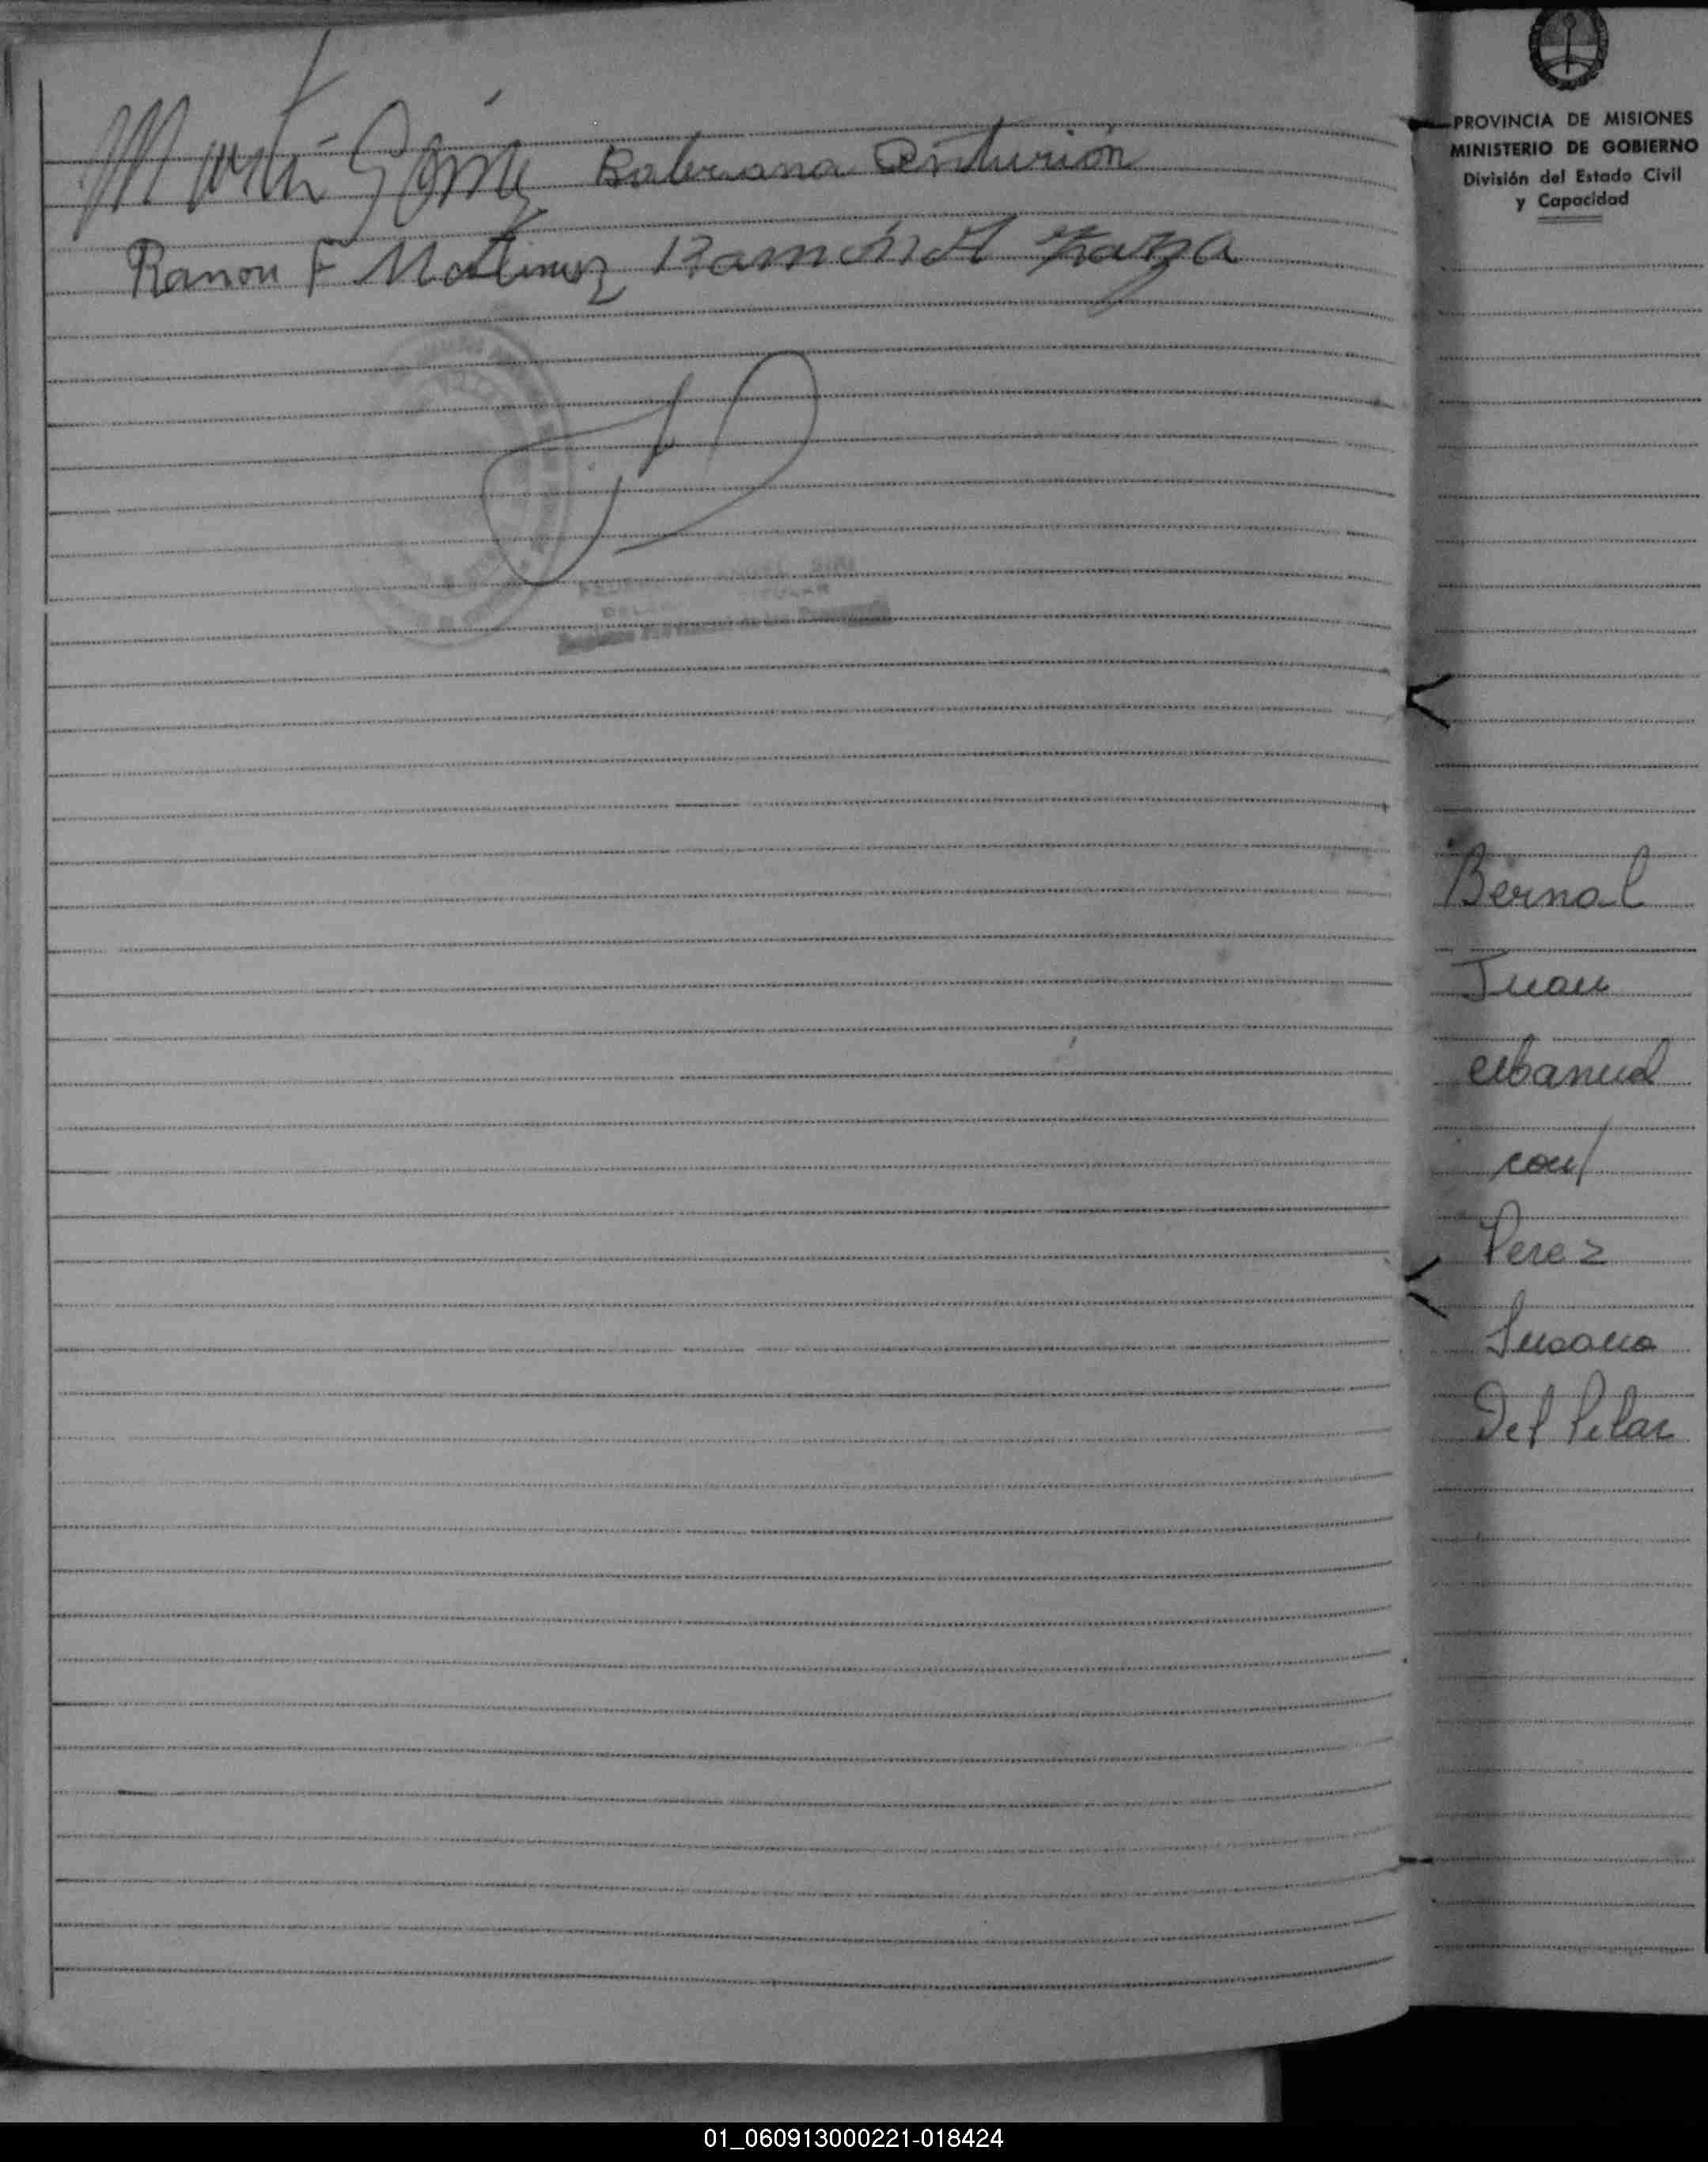 Martín Gómez Baleriana Centurión
Ramon F Martinez Ramón A
PROVINCIA DE MISIONES
MINISTERIO DE GOBIERNO
División del Estado Civil
y Capacidad
Bernal
Juan
Manuel
con/
Perez
Susana
Del Pilar
01_060913000221-018424